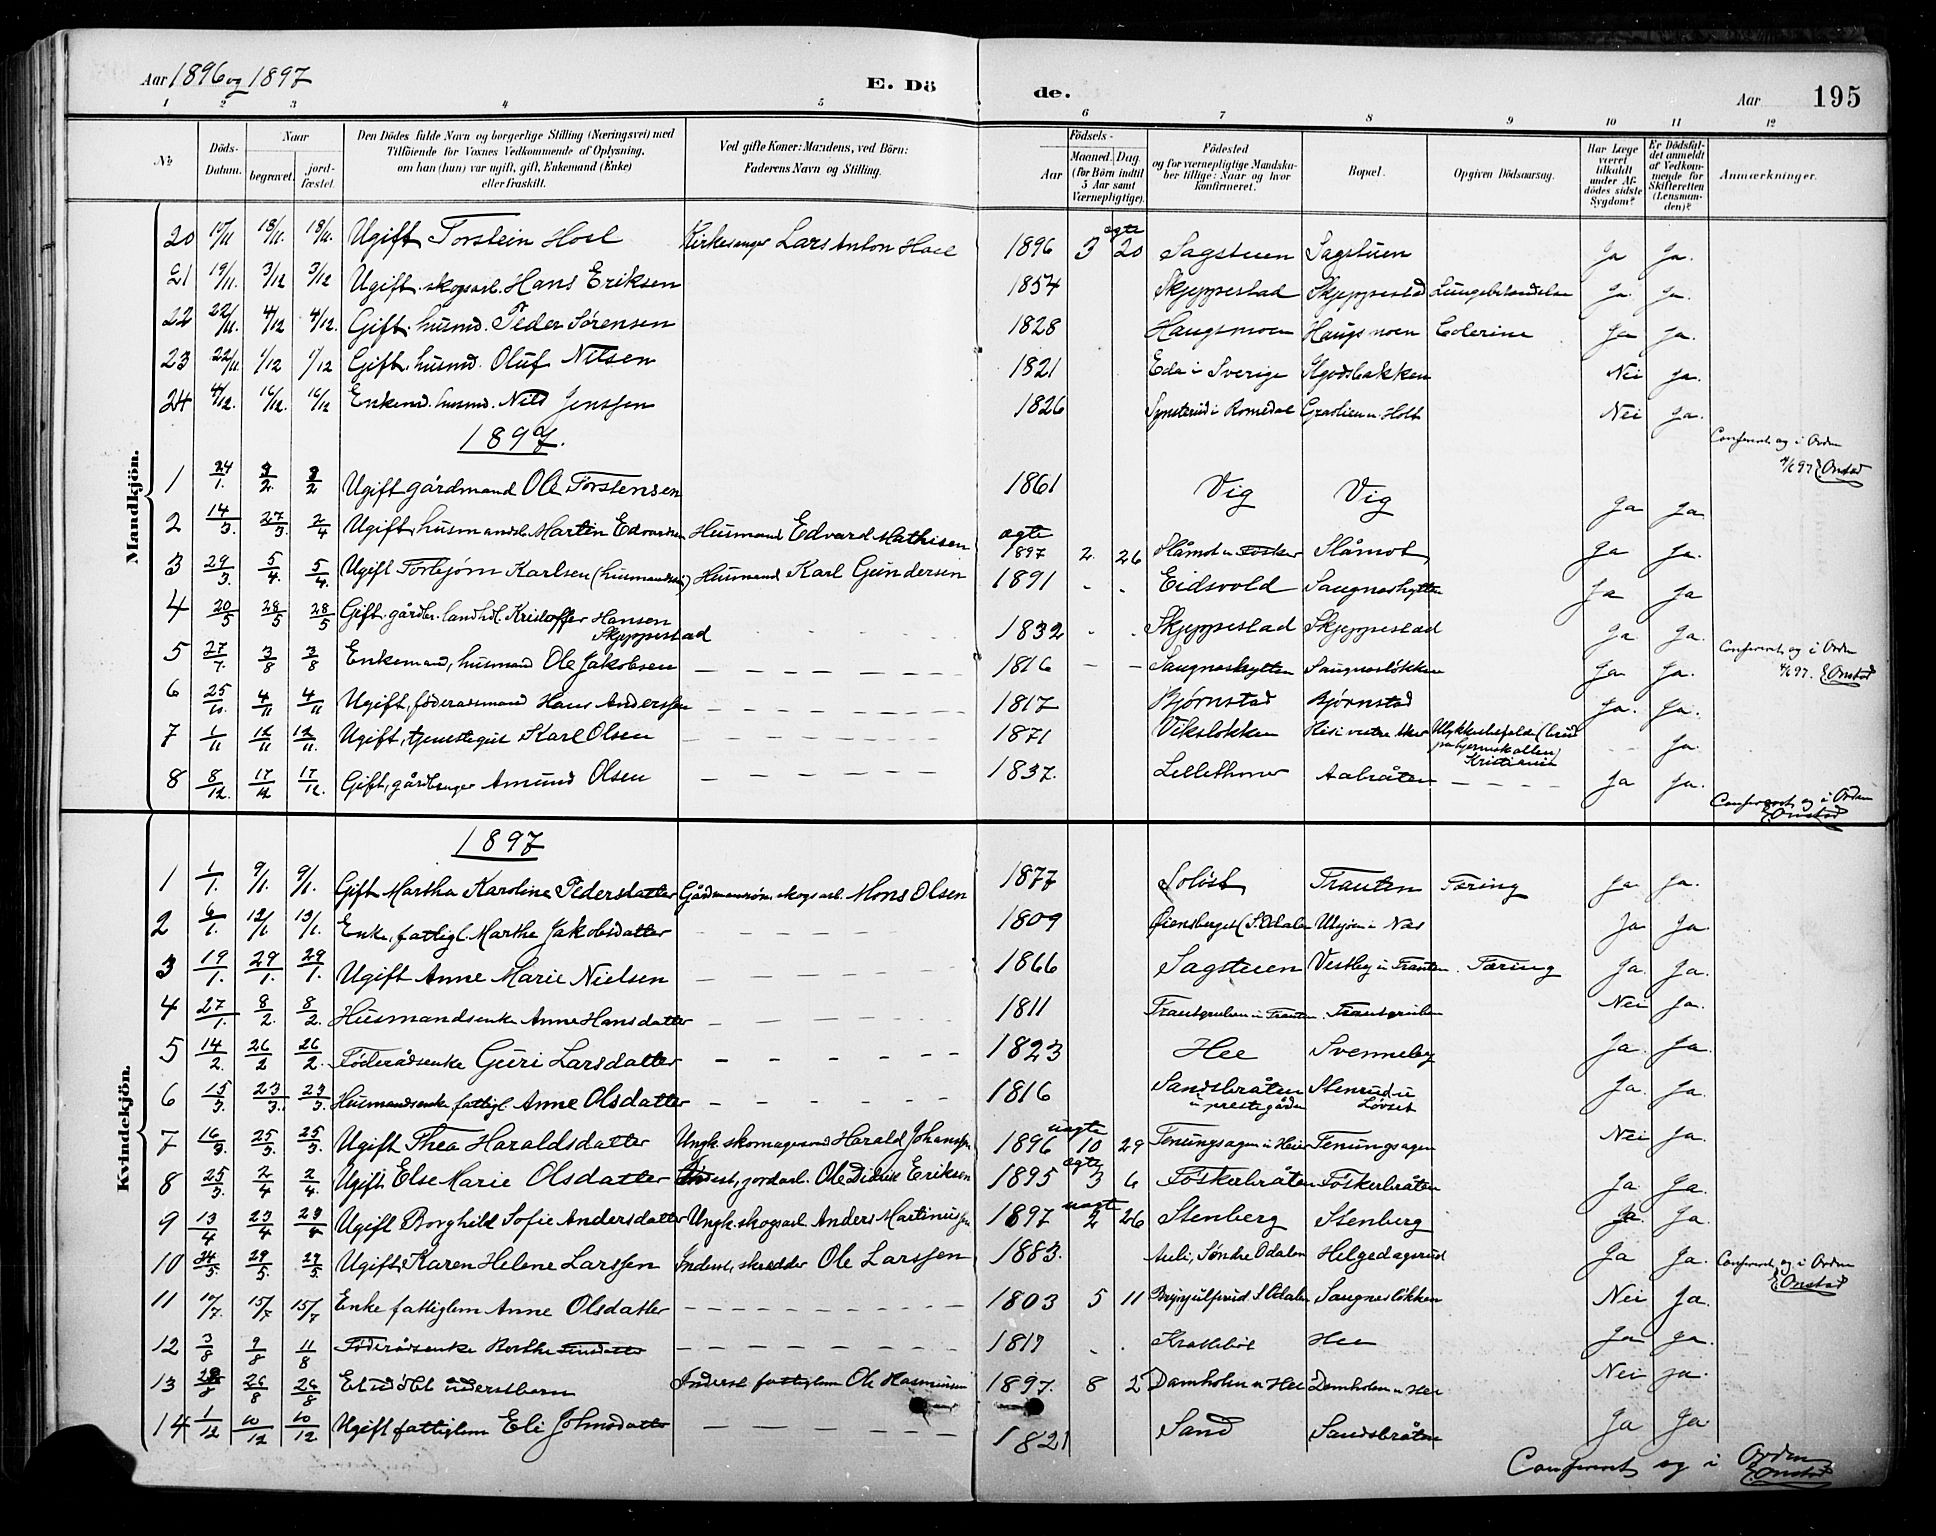 Aar 1896 og 1897
E. Dö
de.
Aar
195
1 2 3 4 5 6 7 8 9 10 11 12
No
Döds-Datum.
Naar
begravet.
jord-fæstet.
Den Dödes fulde Navn og borgerlige Stilling (Næringsvei) med
Tilföiende for Voxnes Vedkommende af Oplysning,
om han (hun) var ugift, gift, Enkemand (Enke)
eller fraskilt.
Ved gifte Koner: Mandens, ved Börn:
Faderens Navn og Stilling.
Födsels-
Aar
Maaned. Dag.
(for Börn indtil
5 Aar samt
Værnepligtige).
Födested
og for værnepligtige Mandska-
ber tillige: Naar og hvor
konfirmeret.
Bopæl.
Opgiven Dödsaarsag.
Har Læge
været
tilkaldt
under Af-
dödes sidste
Sygdom?
Er Dödsfal-
det anmeldt
af Vedkom-
mende for
Skifteretten
(Lensman-
den)?
Anmærkninger.
Mandkjön.
20 18/11. 18/11. Ugift Torstein Hoel Kirkesanger Lars Anton Hoel 1896 3 ægte 20 Sagstuen Sagstuen Ja Ja.
21 19/11. 3/12 3/12 Ugift. skogsarb. Hans Eriksen 1854 Skjeppestad Skjeppestad Lungebetændelse Ja. Ja.
22 22/11. 4/12 4/12. Gift. husmd. Peder Sørensen 1828 Haugsmoen Haugsmoen Colerine Ja Ja.
23 22/11 1/12 1/12 Gift. husmd. Oluf Nilsen 1821 Eda i Sverige Nei Ja.
24 4/12. 16/12. 16/12 Enkemd. husmd. Nils Jenssen 1826 i Romedal Nei Ja.
Conferert og i Orden
4/6 97 E Onstad
1897.
1 24/1. 3/2. 3/2 Ugift gårdmand Ole Torstensen 1861 Vig Vig Ja Ja
2 14/3. 27/3. 2/4 Ugift, husmandsb. Martin Edvardsen Husmand Edvard Mathisen ægte 1897 2. 26 Slåmot Ja Ja.
3 29/3. 5/4. 5/4. Ugift Torbjørn Karlsen Husmand Karl Gundersen 1891 - - Eidsvold Saugneshytten Ja Ja
4 20/5 28/5 28/5 Gift. gårdbr. landhdl. Kristoffer Hansen
Skjeppestad 1832 - - Skjeppestad Skjeppestad Ja Ja.
Conferert og i Orden
4/6 97. E Onstad
5 27/7. 3/8 3/8 Enkemand, husmand Ole Jakobsen 1816 - - Saugneshytten Saugnesløkken Ja. Ja.
6 25/10. 4/11 4/11 Ugift, föderaadsmand Hans Anderssen 1817 Bjørnstad Bjørnstad Ja. Ja.
7 1/11 12/11 12/11. Ugift, tjenestegut Karl Olsen 1871 Viksløkken Ulykkestilfælde (brud
på hjerneskallen)
Kristiania Ja.
8 8/12. 17/12 17/12 Gift, gårdbruger Amund Olsen 1837. Aabråten Ja Ja.
Conferert og i Orden
E Onstad
Kvindekjön.
1897
1 1/1. 9/1. 9/1. Gift Martha Karoline Pedersdatter skogsarb. Mons Olsen 1877 Trauten Tæring Ja Ja.
2 6/1. 13/1. Enke, fattigl. Marthe Jakobsdatter 1809 S. Odalen Ja Ja
3 19/1. 29/1. 29/1. Ugift Anne Marie Nielsen 1866 Sagstuen Vestby i Trauten. Tæring Ja. Ja.
4 27/1. 8/2. 8/2. Husmandsenke Anne Hansdatter 1811 Nei Ja.
5 14/2. 26/2 26/2. Føderådsenke Guri Larsdatter 1823 Hee Svenneby Ja. Ja.
6 15/3. 23/3. 23/3. Husmandsenke fattigl. Anne Olsdatter 1816 Sandsbråten
i prestegården Stenrud i
Løvset Ja. Ja.
7 16/3. 25/3. 25/3. Ugift Thea Haraldsdatter Ungk. skomagersvend Harald Johanssen 1896 uægte 10 29 Tenungsagen i Heier Tenungsagen Nei Ja.
8 25/3. 2/4 2/4. Ugift Else Marie Olsdatter Inderst, jordarb. Ole Didrik Eriksen 1895 ægte 3 6 Foskerbråten Foskerbråten Ja. Ja.
9 13/4 23/4 23/4 Ugift Borghild Sofie Andersdatter Ungk. skogsarb Anders Martinussen 1897 uægte 2 26 Stenberg Stenberg Ja. Ja.
10 24/5. 29/5. 29/5 Ugift Karen Helene Larssen Inderst, skrædder Ole Larssen 1883. Søndre Odalen Helgedagsrud Ja Ja.
Conferert og i Orden
E Onstad
11 15/7 15/7 Enke fattiglem Anne Olsdatter 1803 5 11 S Odalen Saugnesløkken Nei Ja.
12 3/8 9/8 11/8 Føderådsenke Berthe Finsdatter 1817 Hee Ja Ja.
13 26/8 26/8 Et udöbt Inderst fattiglem Ole Rasmussen 1897. 8 2 Damholen u. Hee Damholen u. Hee Nei Ja.
14 1/12 10/12 10/12 Ugift fattiglem Eli Johnsdatter 1821 Sand Sandsbråten Ja Ja
Conferert og i Orden
E Onstad